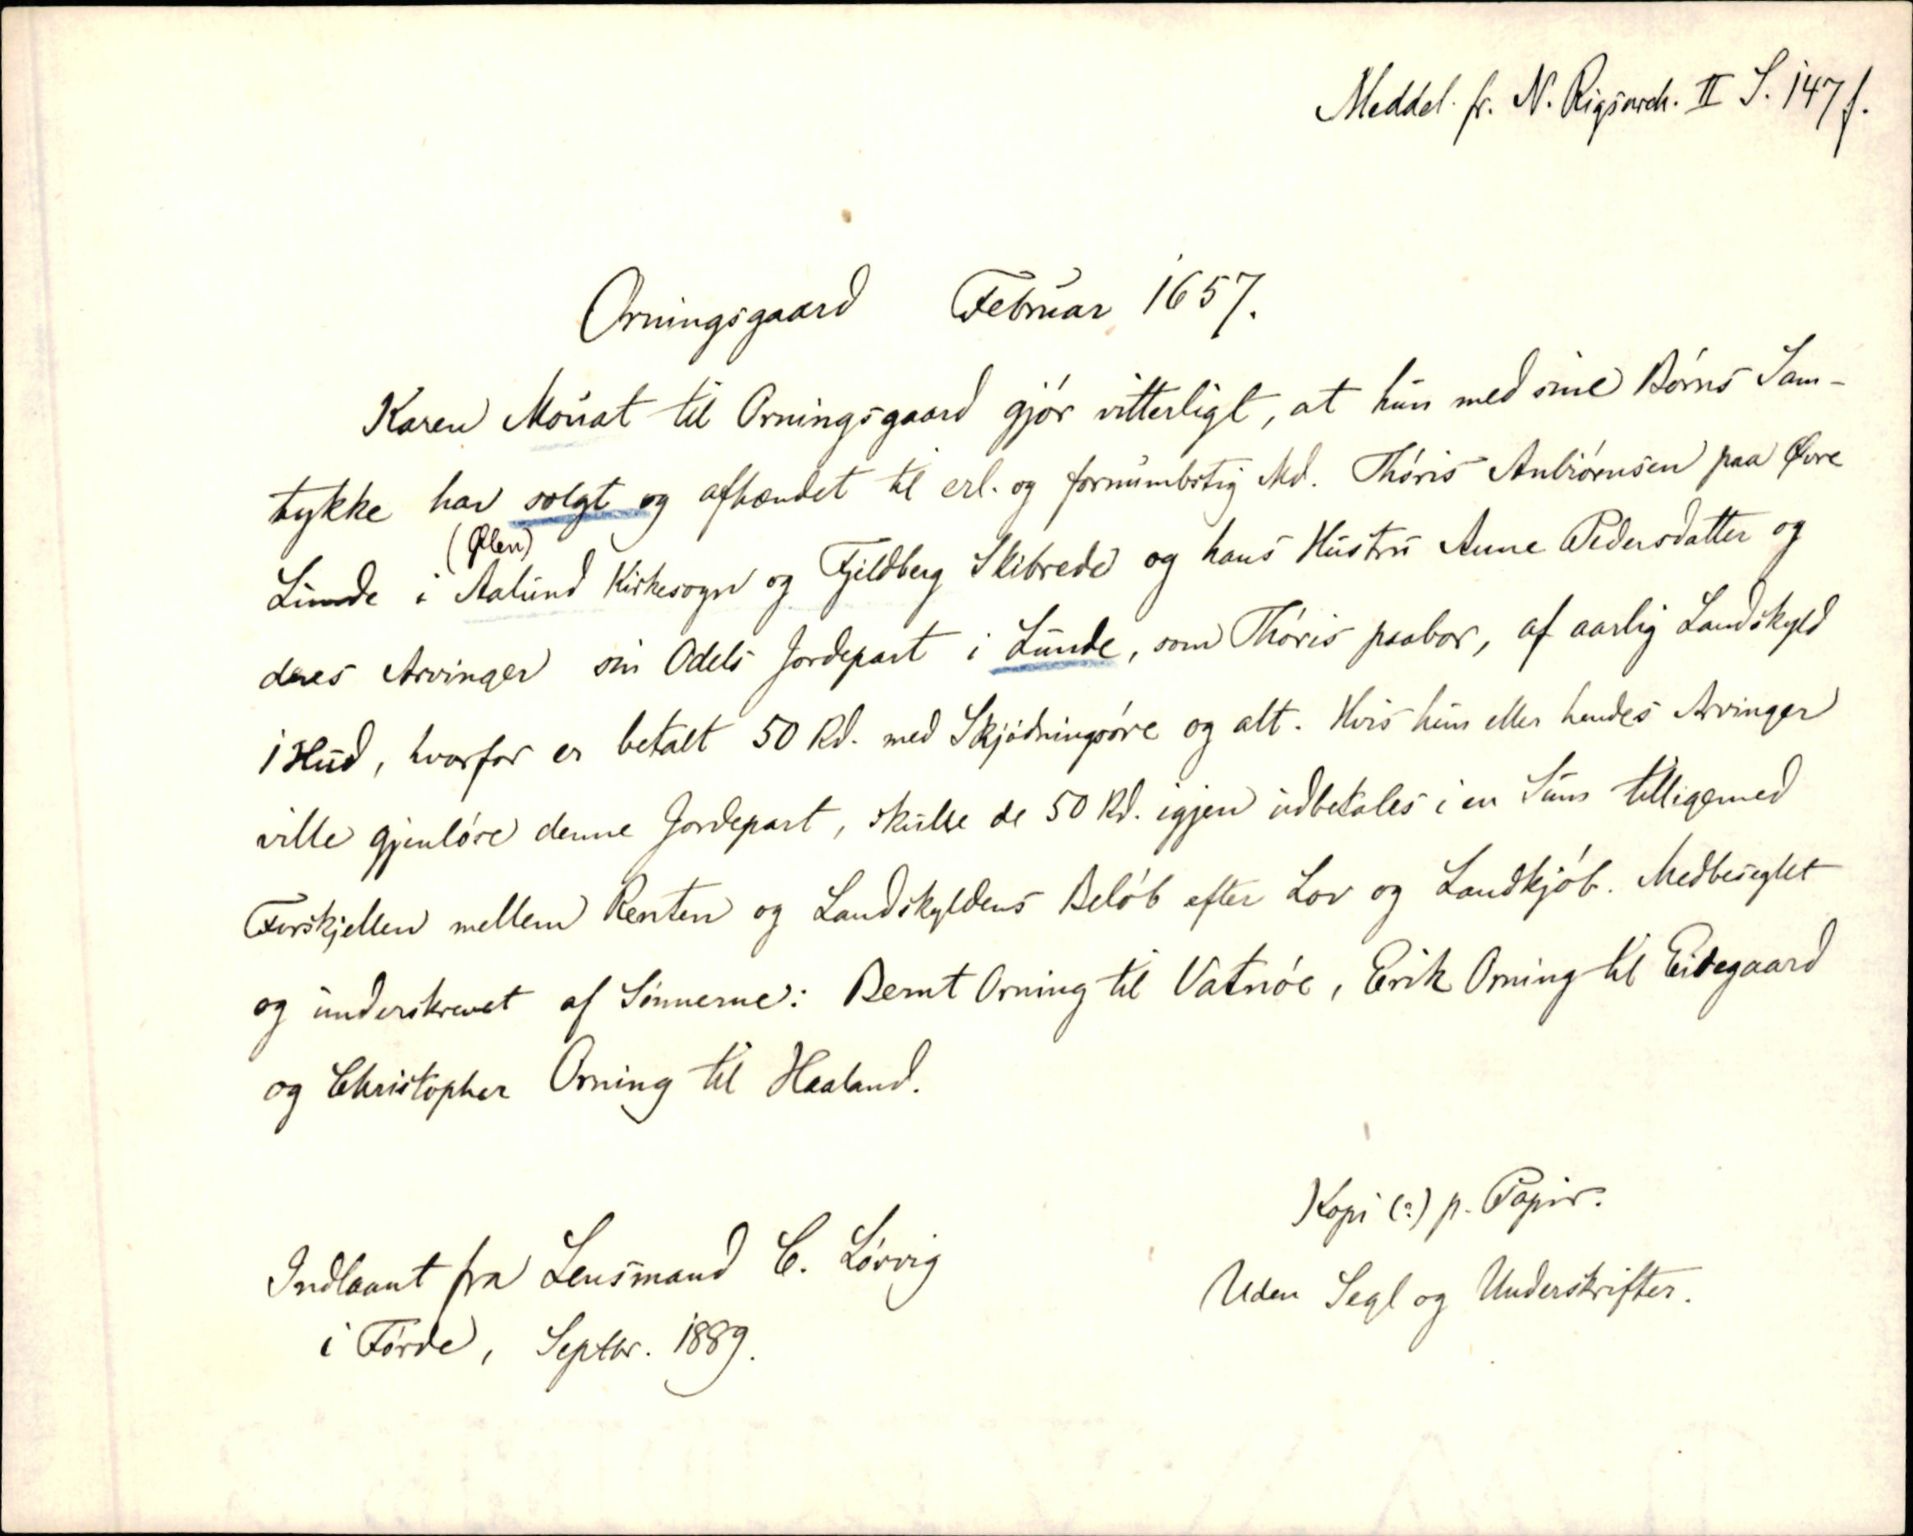 Meddel. fr. N. Rigsarch. II S. 147 f.
Orningsgaard Februar 1657.
Karen Mouat til Orningsgaard gjør vitterligt, at hun med sine Børns Sam-
tykke har solgt og afhændet til erl. og fornumbstig Md. Thóris Anbiørnsen paa Øvre
(Ølen)
Lunde i Aalund Kirkesogn og Fjeldberg Skibrede og hans Hustru Anne Pedersdatter og
deres Arvinger sin Odels Jordepart i Lunde, som Thóris paabor, af aarlig Landskyld
1 Hud, hvorfor er betalt 50 Rd. med Skjødningsøre og alt. Hvis hun eller hendes Arvinger
ville gjenløse denne Jordepart, skulle de 50 Rd. igjen udbetales i en Sum tilligemed
Forskjellen mellem Renten og Landskyldens Beløb efter Lov og Landkjøb. Medbeseglet
og underskrevet af Sønnerne: Bernt Orning til Vatnøe, Erik Orning til Eidegaard
og Christopher Orning til Haaland.
Kopi (?) p. Papir.
Uden Segl og Underskrifter.
Indlaant fra Lensmand C. Løvvig
i Førde, Septbr. 1889.